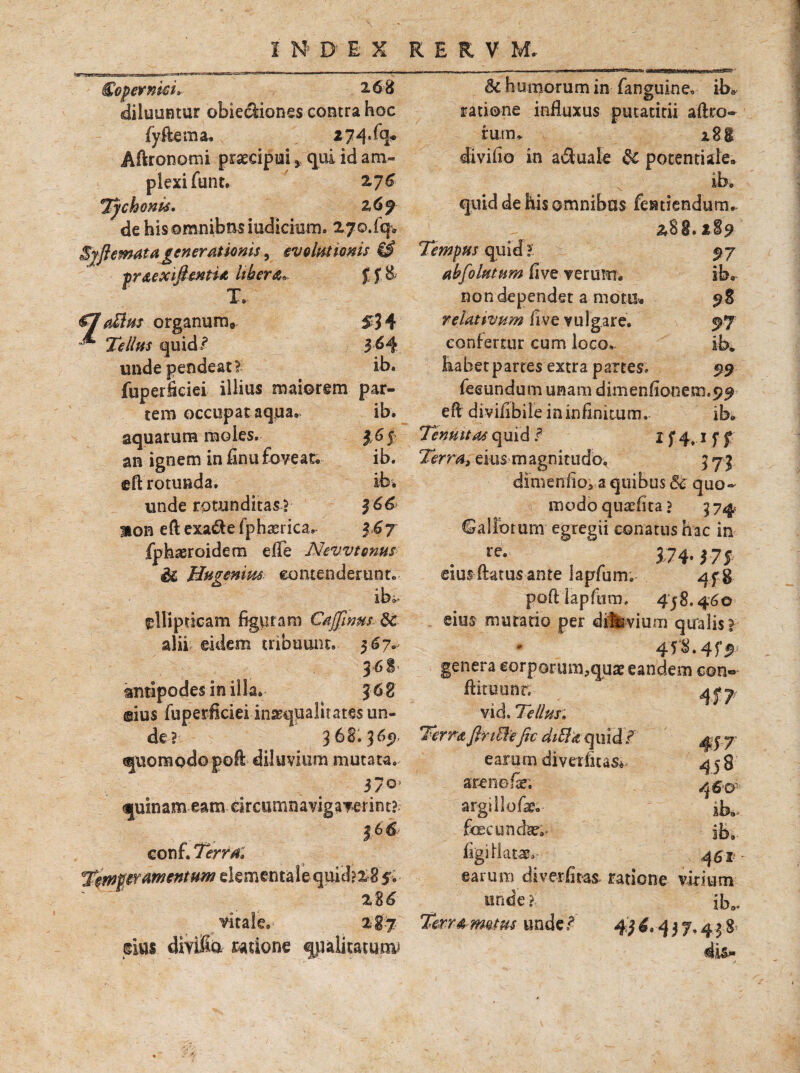 INDEX RERVM.
Copernici. 268
diluuntur obiectiones contra hoc
ſyſtema. 274.ſq.
Aſtronomi præcipui, qui id am-
plexi ſunt. 276
Tychonis. 269
de his omnibus iudicium. 270.ſq.
Syſtemata generationis, evolutionis &
praexiſtentiæ libera. 558
T.
Tactus organum. 534
Tellus quid? 364
unde pendeat? ib.
ſuperficiei illius maiorem par-
tem occupat aqua. ib.
aquarum moles. 365
an ignem in ſinu foveat. ib.
eſt rotunda. ib.
unde rotunditas? 366
non eſt exacte ſphærica. 367
ſphæroidem eſſe Nevvtonus
& Hugenius contenderunt.
ib.
ellipticam figuram Caſſinus &
alii eidem tribuunt. 367.
368
antipodes in illa. 368
eius ſuperficiei inæqualitates un-
de? 368.369
quomodo poſt diluvium mutata.
370
quinam eam circumnavigaverint?
366
conf. Terra.
Temperamentum elementale quid? 285.
286
vitale. 287
eius diviſio ratione qualitatum
& humorum in ſanguine. ib.
ratione influxus putatitii aſtro-
rum. 288
diviſio in actuale & potentiale.
ib.
quid de his omnibus ſentiendum.
288.289
Tempus quid? 97
abſolutum ſive verum. ib.
non dependet a motu. 98
relativum ſive vulgare. 97
confertur cum loco. ib.
habet partes extra partes. 99
ſecundum unam dimenſionem. 99
eſt diviſibile in infinitum. ib.
Tenuitas quid? 154.155
Terra, eius magnitudo. 373
dimenſio, a quibus & quo-
modo quæſita? 374
Gallorum egregii conatus hac in
re. 374.375
eius ſtatus ante lapſum. 458
poſt lapſum. 458.460
eius mutatio per diluvium qualis?
458.459
genera corporum, quæ eandem con-
ſtituunt. 457
vid. Tellus.
Terra ſtricte ſic dicta quid? 457
earum diverſitas. 458
arenoſæ. 460
argilloſæ. ib.
fœcundæ. ib.
ſigillatæ. 461
earum diverſitas ratione virium
unde? ib.
Terra motus unde? 436.437.438
dis-